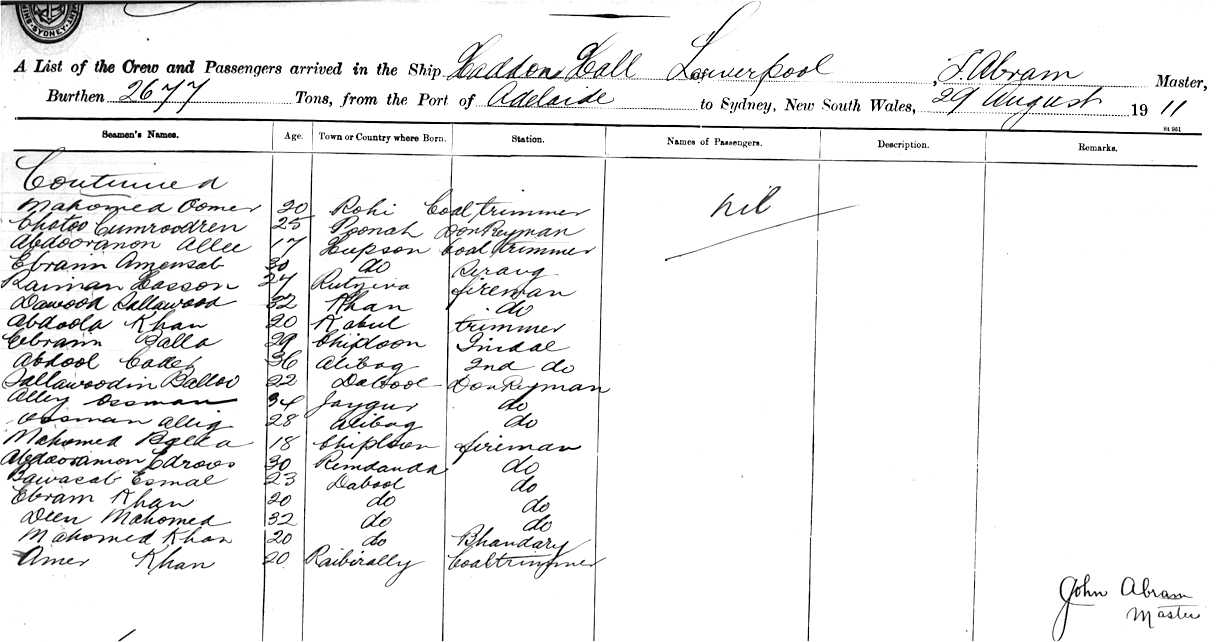 SYDNEY
A List of the Crew and Passengers arrived in the Ship Haddon Hall of Liverpool, J. Abram Master,
Burthen 2677 Tons, from the Port of Adelaide to Sydney, New South Wales, 29 August 1911
84 961
Seamen's Names. Age. Town or Country where Born. Station. Names of Passengers. Description. Remarks.
Continued
Mahomed Oomer 20 Rohi Coal trimmer nil
Chotoo Cumroodren 25 Poonah Donkeyman
Abdooranon Allee 17 Hupson Coal trimmer
Ebraim Amensab 30 do Serang
Raiman Hasson 24 Rutnira fireman
Dawood Sallawood 32 Khan do
Abdoola Khan 20 Kabul trimmer
Ebraim Balla 29 Chiploon Tindal
Abdool Cader 36 Alibag 2nd do
Sallawoodin Balloo 22 Dabool Donkeyman
Alley Ossman 34 Jaygur do
Ossman Allig 28 Alibag do
Mahomed Balla 18 Chiploon fireman
Abdooramon Edroos 30 Remdanda do
Bawasab Esmal 23 Dabool do
Ebram Khan 20 do do
Deen Mahomed 32 do do
Mahomed Khan 20 do Bhandary
Amer Khan 20 Raibirally Coaltrimmer
John Abram
Master